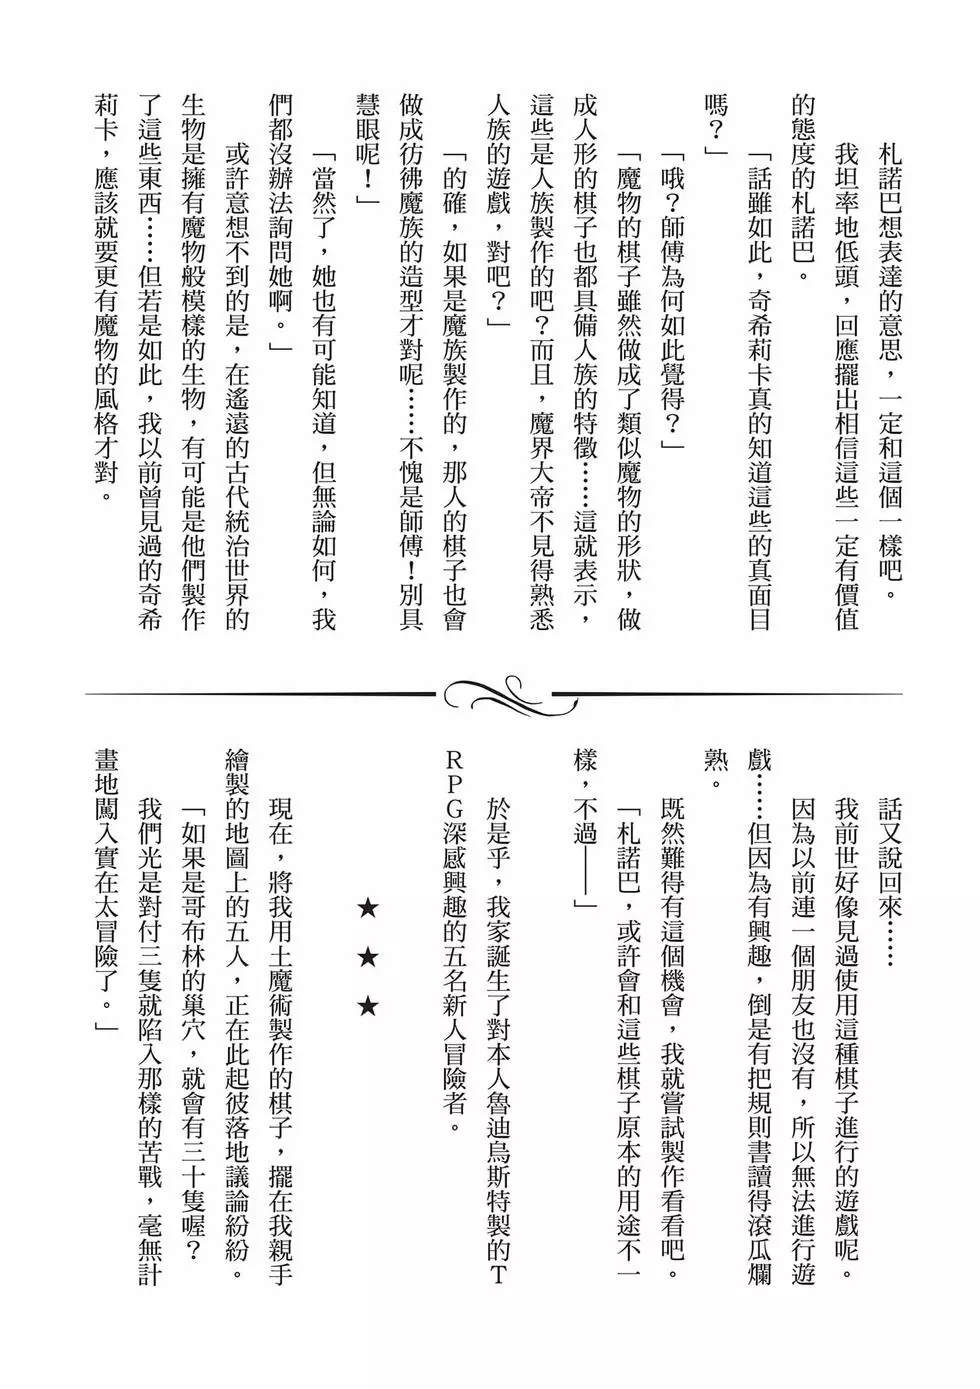 札諾巴想表達的意思，一定和這個一樣吧。
我坦率地低頭，回應擺出相信這些一定有價值
的態度的札諾巴。
「話雖如此，奇希莉卡真的知道這些的真面目
嗎？」
「哦？師傅為何如此覺得？」
「魔物的棋子雖然做成了類似魔物的形狀，做
成人形的棋子也都具備人族的特徵……這就表示，
這些是人族製作的吧？而且，魔界大帝不見得熟悉
人族的遊戲，對吧？」
「的確，如果是魔族製作的，那人的棋子也會
做成彷彿魔族的造型才對呢……不愧是師傅！別具
慧眼呢！」
「當然了，她也有可能知道，但無論如何，我
們都沒辦法詢問她啊。」
或許意想不到的是，在遙遠的古代統治世界的
生物是擁有魔物般模樣的生物，有可能是他們製作
了這些東西……但若是如此，我以前曾見過的奇希
莉卡，應該就要更有魔物的風格才對。
話又說回來……
我前世好像見過使用這種棋子進行的遊戲呢。
因為以前連一個朋友也沒有，所以無法進行遊
戲……但因為有興趣，倒是有把規則書讀得滾瓜爛
熟。
既然難得有這個機會，我就嘗試製作看看吧。
「札諾巴，或許會和這些棋子原本的用途不一
樣，不過——」
於是乎，我家誕生了對本人魯迪烏斯特製的T
RPG深感興趣的五名新人冒險者。
★ ★ ★
現在，將我用土魔術製作的棋子，擺在我親手
繪製的地圖上的五人，正在此起彼落地議論紛紛。
「如果是哥布林的巢穴，就會有三十隻喔？
我們光是對付三隻就陷入那樣的苦戰，毫無計
畫地闖入實在太冒險了。」